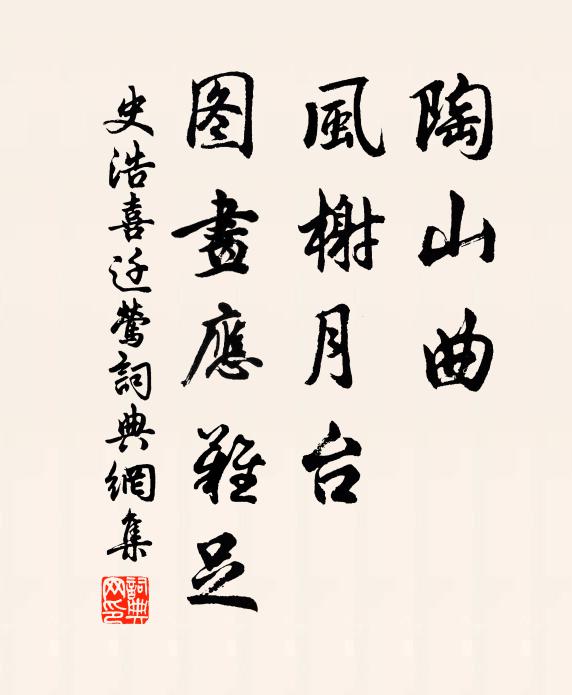 陶山曲
風榭月台
图畫應難足
史浩喜迁莺詞典網集
詞典网印